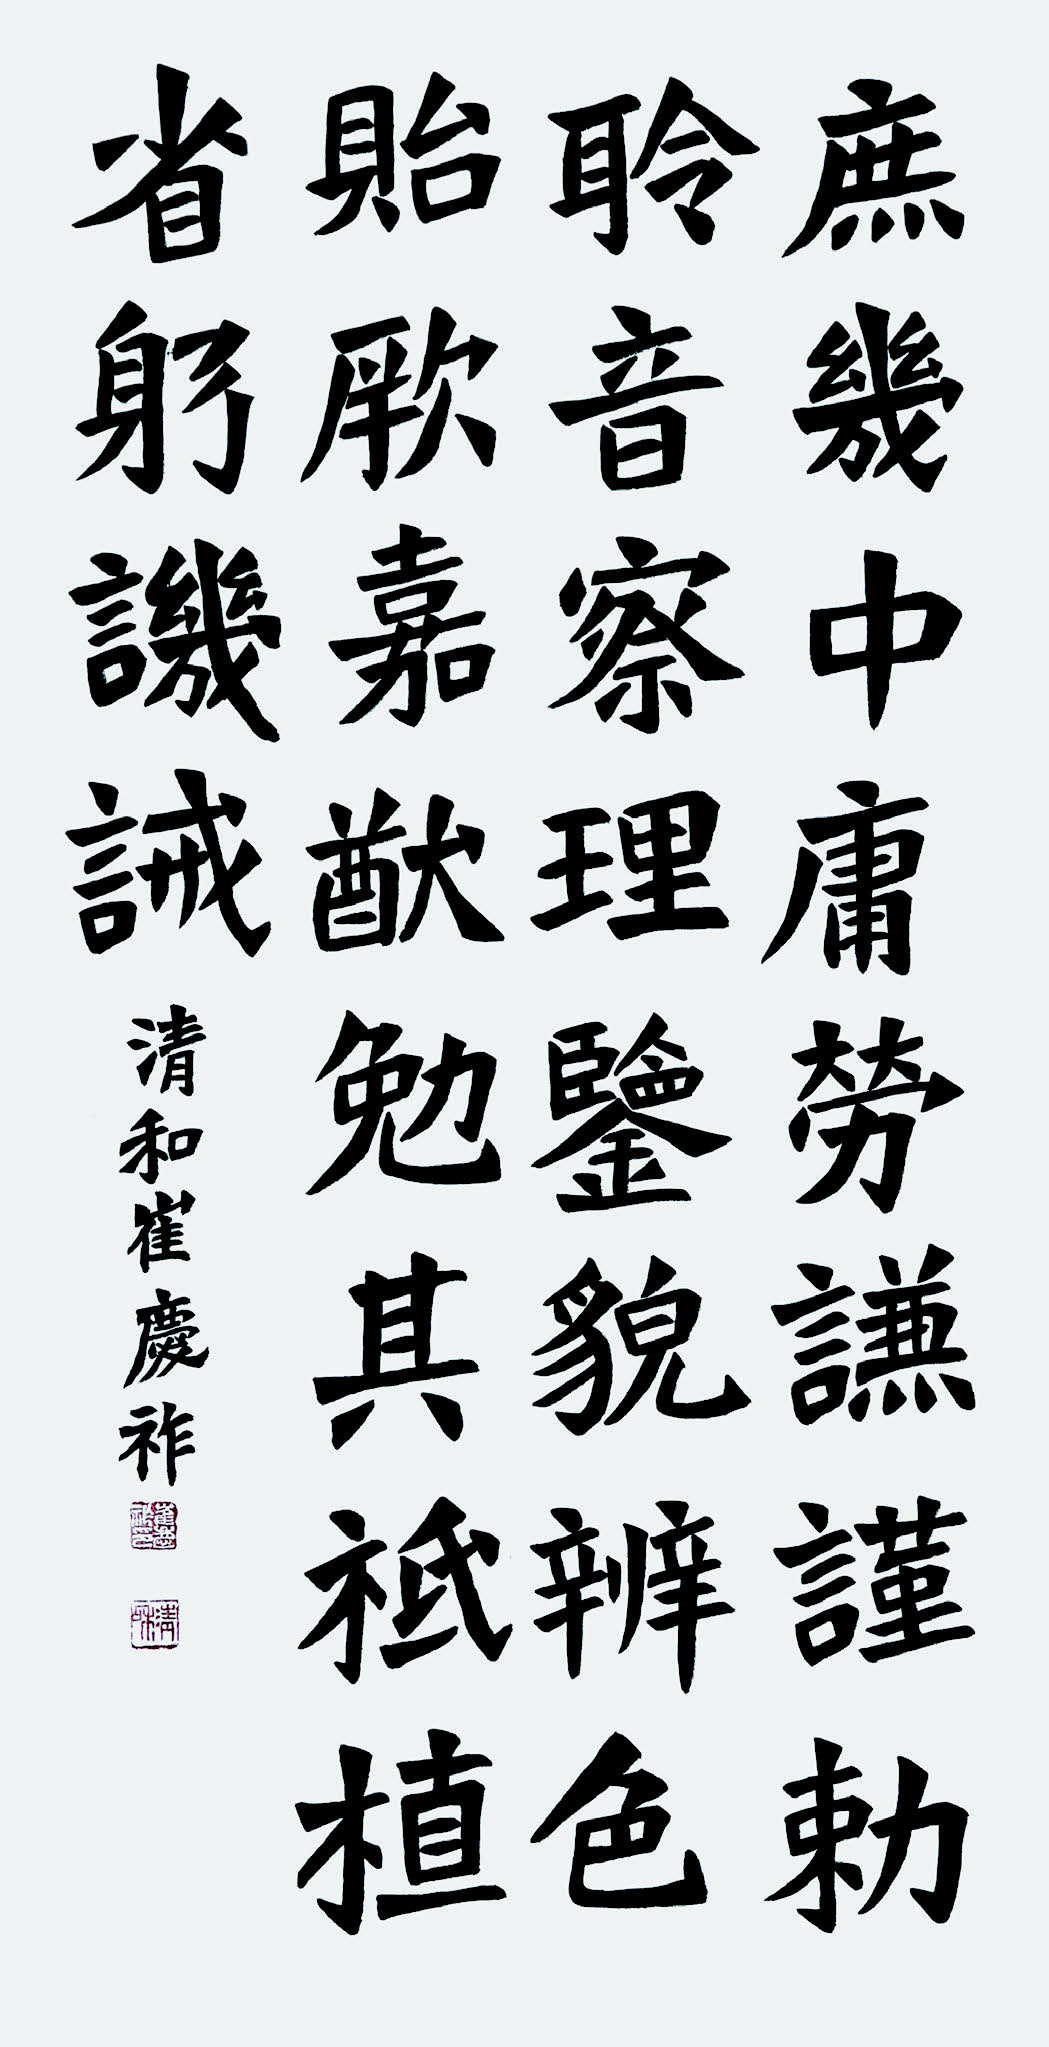 庶幾中庸勞謙謹勅
聆音察理鑒貌辨色
貽厥嘉猷勉其祗植
省躬譏誡
清和崔慶祚
清和